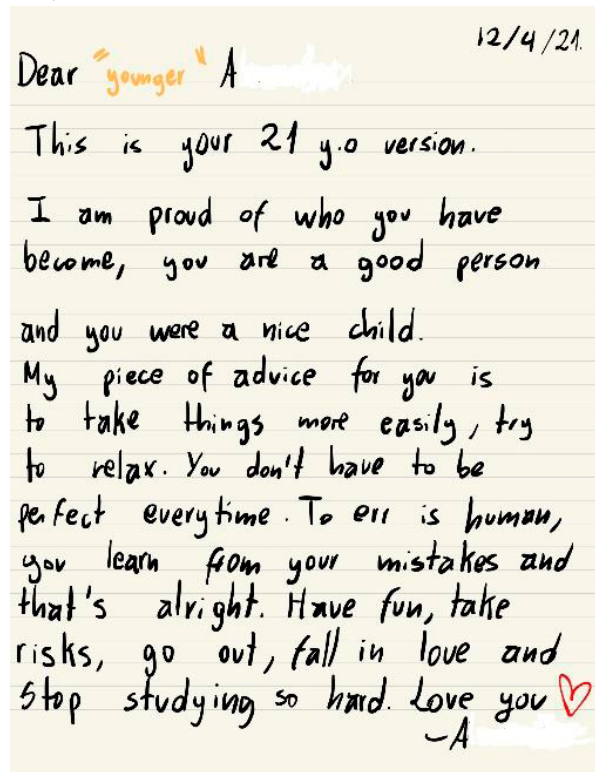 12/4/21.
Dear "younger" A
This is your 21 y.o version.
I am proud of who you have
become, you are a good person
and you were a nice child.
My piece of advice for you is
to take things more easily, try
to relax. You don't have to be
perfect everytime. To err is human,
you learn from your mistakes and
that's alright. Have fun, take
risks, go out, fall in love and
stop studying so hard. Love you ♡
-A